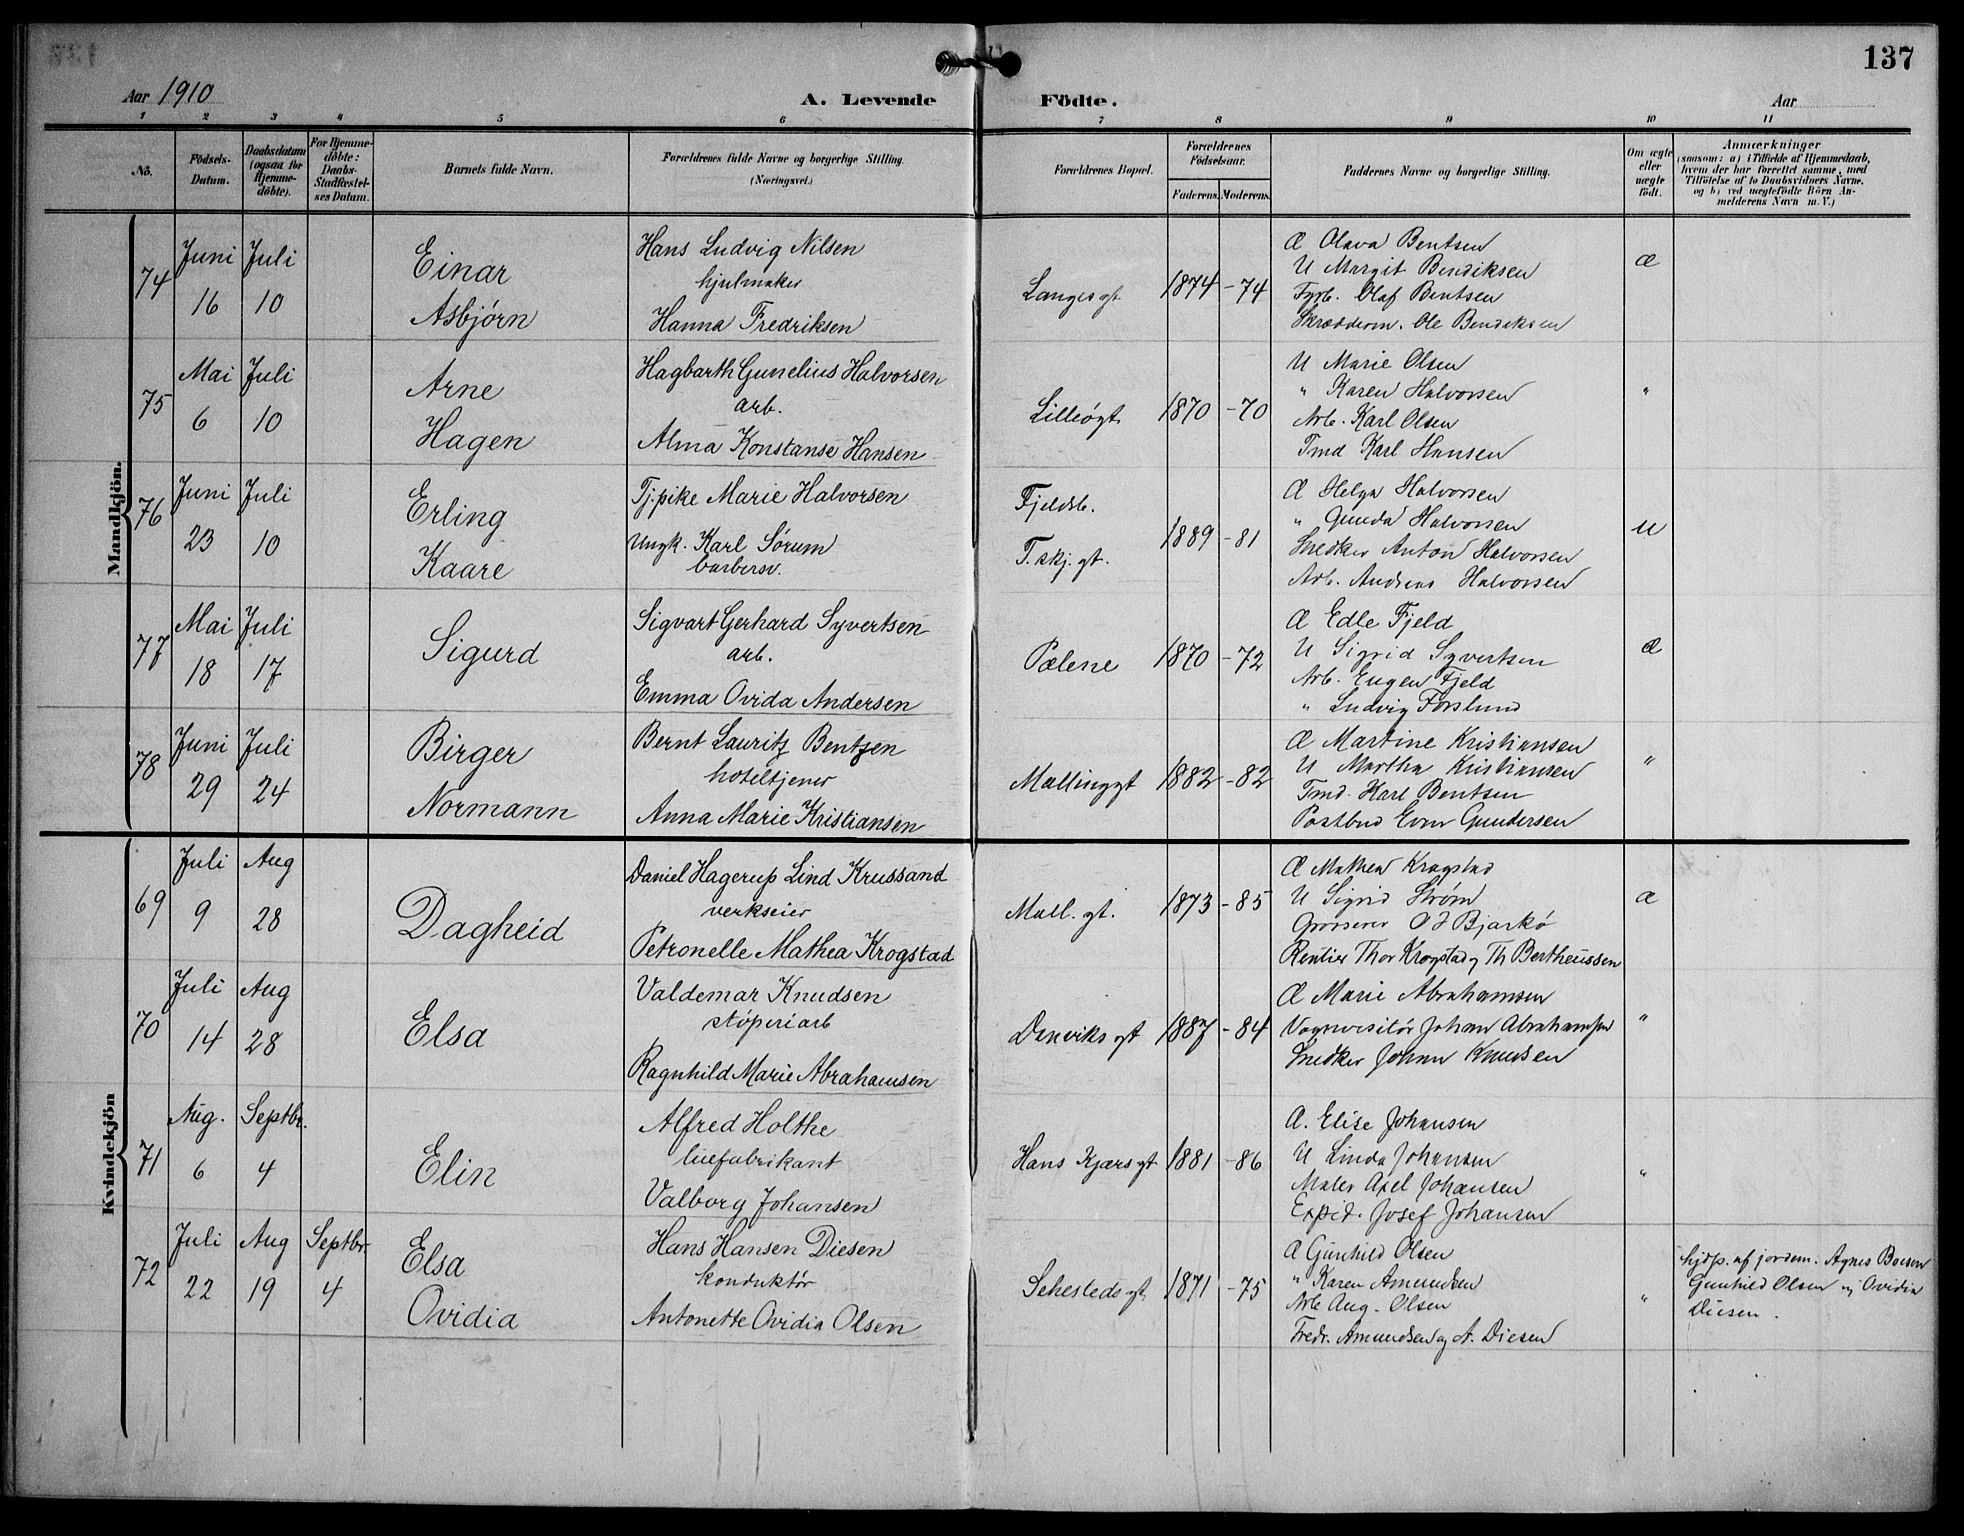 137
Aar 1910 A. Levende Födte. Aar
1 2 3 4 5 6 7 8 9 10 11
Nö.
Födsels-Datum.
Daabsdatum (ogsaa for Hjemmedöbte).
For Hjemmedöbte: Daabs-Stadfæstelses Datum.
Barnets fulde Navn.
Forældrenes fulde Navne og borgerlige Stilling.
(Næringsvei.)
Forældrenes Bopæl.
Forældrenes Födselsaar.
Faderens. Moderens.
Faddernes Navne og borgerlige Stilling.
Om ægte eller uægte födt.
Anmærkninger
(saasom: a) i Tilfælde af Hjemmedaab,
hvem der har forrettet samme, med
Tilföielse af to Daabsvidners Navne.
og b) ved uægtefödte Börn An-
melderens Navn m. V.)
Mandkjön.
74
Juni 16
Juli 10
Einar
Asbjørn
Hans Ludvig Nilsen
hjulmaker
Hanna Fredriksen
Langes gt
1874 - 74
Æ Olava Bentsen
U Margit Bendiksen
Fyrb. Olaf Bentsen
Skrædderm. Ole Bendiksen
Æ
75
Mai 6
Juli 10
Arne
Hagen
Hagbarth Gunelius Halvorsen
arb.
Alma Konstanse Hansen
Lilleøgt.
1870 - 70
U Marie Olsen
" Karen Halvorsen
Arb. Karl Olsen
Tmd Karl Hansen
"
76
Juni 23
Juli 10
Erling
Kaare
Tj.pike Marie Halvorsen
Ungk. Karl Sørum
barbersv.
Fjeldsb.
T. skj. gt.
1889 - 81
Æ Helga Halvorsen
" Gunda Halvorsen
Snedker Anton Halvorsen
Arb. Andreas Halvorsen
U
77
Mai 18
Juli 17
Sigurd
Sigvart Gerhard Syvertsen
arb.
Emma Ovida Andersen
Pælene
1870 - 72
Æ Edle Fjeld
U Sigrid Syvertsen
Arb. Eugen Fjeld
" Ludvig Forslund
Æ
78
Juni 29
Juli 24
Birger
Normann
Bernt Lauritz Bentzen
hoteltjener
Anna Marie Kristiansen
Mallinggt
1882 - 82
Æ Martine Kristiansen
U Martha Kristiansen
Tmd. Karl Bentsen
Postbud Even Gundersen
"
Kvindekjön
69
Juli 9
Aug 28
Dagheid
Daniel Hagerup Lind Krussand
verkseier
Petronelle Mathea Krogstad
Mall. gt.
1873 - 85
Æ Mathea Krogstad
U Sigrid Strøm
Grosserer O J Bjarkø
Rentier Thor Krogstad og Th Bertheussen
Æ
70
Juli 14
Aug 28
Elsa
Valdemar Knudsen
støperiarb
Ragnhild Marie Abrahamsen
Danviks gt
1887 - 84
Æ Marie Abrahamsen
Vognvisitør Johan Abrahamsen
Snedker Johan Knudsen
"
71
Aug. 6
Septbr. 4
Elin
Alfred Holthe
luefabrikant
Valborg Johansen
Hans Kjærs gt
1881 - 86
Æ. Elise Johansen
U Linda Johansen
Maler Axel Johansen
Exped. Josef Johansen
"
72
Juli 22
Aug 19
Septbr. 4
Elsa
Ovidia
Hans Hansen Diesen
konduktør
Antonette Ovidia Olsen
Sehesteds gt.
1871 - 75
Æ Gunhild Olsen
" Karen Amundsen
Arb Aug. Olsen
Fredr. Amundsen og A. Diesen
"
hjdp. af jordem. Agnes Boesen
Gunhild Olsen og Ovidia
Diesen.